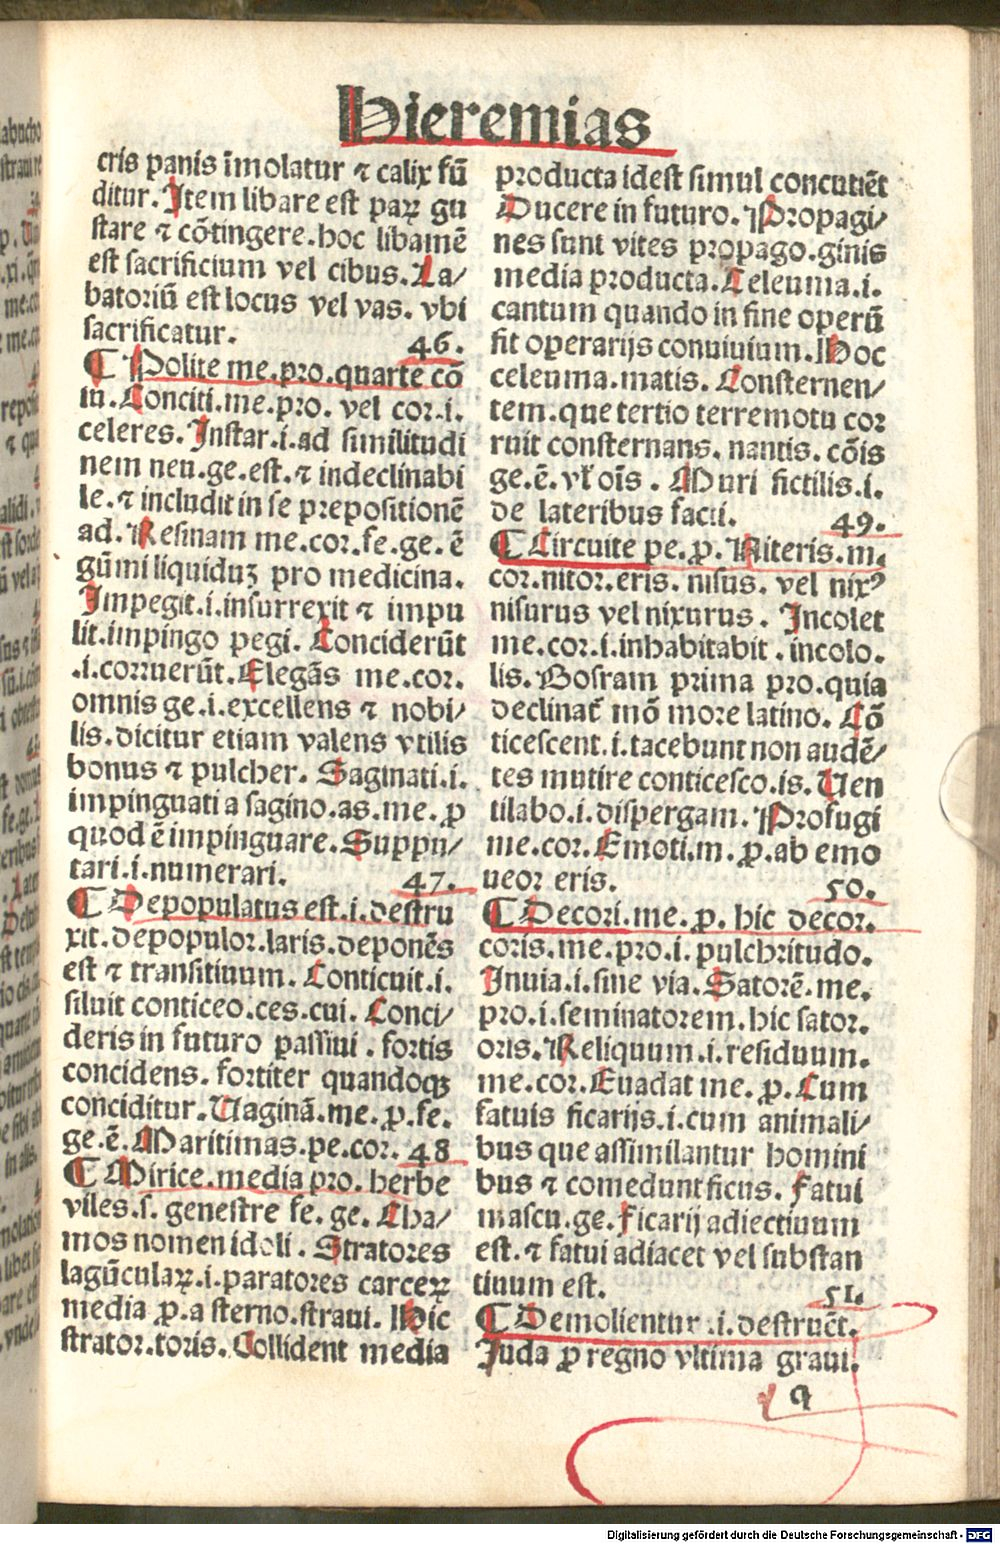 Hieremias
cris panis īmolatur ⁊ calix fū
ditur. Item libare est paꝝ gu
stare ⁊ cōtingere. hoc libamē
est sacrificium vel cibus. La/
batoriū est locus vel vas. vbi
sacrificatur. 46.
¶ Polite me. pro. quarte cō
iu. Conciti. me. pro. vel cor. i.
celeres. Instar. i. ad similitudi
nem neu. ge. est. ⁊ indeclinabi
le. ⁊ includit in se prepositionē
ad. Resinam me. cor. fe. ge. ē
gūmi liquiduꝫ pro medicina.
Impegit. i. insurrexit ⁊ impu
lit. impingo pegi. Conciderūt
.i. corruerūt. Elegās me. cor.
omnis ge. i. excellens ⁊ nobi/
lis. dicitur etiam valens vtilis
bonus ⁊ pulcher. Saginati. i.
impinguati a sagino. as. me. ꝓ
quod ē impinguare. Suppu/
tari. i. numerari. 47.
¶ Depopulatus est. i. destru
xit. depopulor. laris. deponēs
est ⁊ transitiuum. Conticuit. i.
siluit conticeo. ces. cui. Conci/
deris in futuro passiui . fortis
concidens. fortiter quandoqꝫ
conciditur. Uaginā. me. ꝓ. fe.
ge. ē. Maritimas. pe. cor. 48
¶ Mirice. media pro. herbe
viles. s. genestre fe. ge. Cha/
mos nomen idoli. Stratores
lagūculaꝝ. i. paratores carceꝝ
media ꝓ. a sterno. straui. Hic
strator. toris. Collident media
producta idest simul concutiēt
Ducere in futuro. Propagi/
nes sunt vites propago. ginis
media producta. Celeuma. i.
cantum quando in fine operū
fit operarijs conuiuium. Hoc
celeuma. matis. Consternen/
tem. que tertio terremotu cor
ruit consternans. nantis. cōis
ge. ē. vł oīs . Muri fictilis. i.
de lateribus facti. 49.
¶ Circuite pe. ꝓ. Niteris. m.
cor. nitor. eris. nisus. vel nixꝰ
nisurus vel nixurus. Incolet
me. cor. i. inhabitabit . incolo.
lis. Bosram prima pro. quia
declinat̄ mō more latino. Cō
ticescent. i. tacebunt non audē/
tes mutire conticesco. is. Uen
tilabo. i. dispergam. Profugi
me. cor. Emoti. m. ꝓ. ab emo
ueor eris. 50.
¶ Decori. me. ꝓ. hic decor.
coris. me. pro. i. pulchritudo.
Inuia. i. sine via. Satorē. me.
pro. i. seminatorem. hic sator.
oris. Reliquum. i. residuum.
me. cor. Euadat me. ꝓ. Cum
fatuis ficarijs. i. cum animali/
bus que assimilantur homini
bus ⁊ comedunt ficus. Fatui
mascu. ge. Ficarij adiectiuum
est. ⁊ fatui adiacet vel substan
tiuum est. 51.
¶ Demolientur .i. destruēt.
Juda ꝓ regno vltima graui.
q
Digitalisierung gefördert durch die Deutsche Forschungsgemeinschaft - DFG